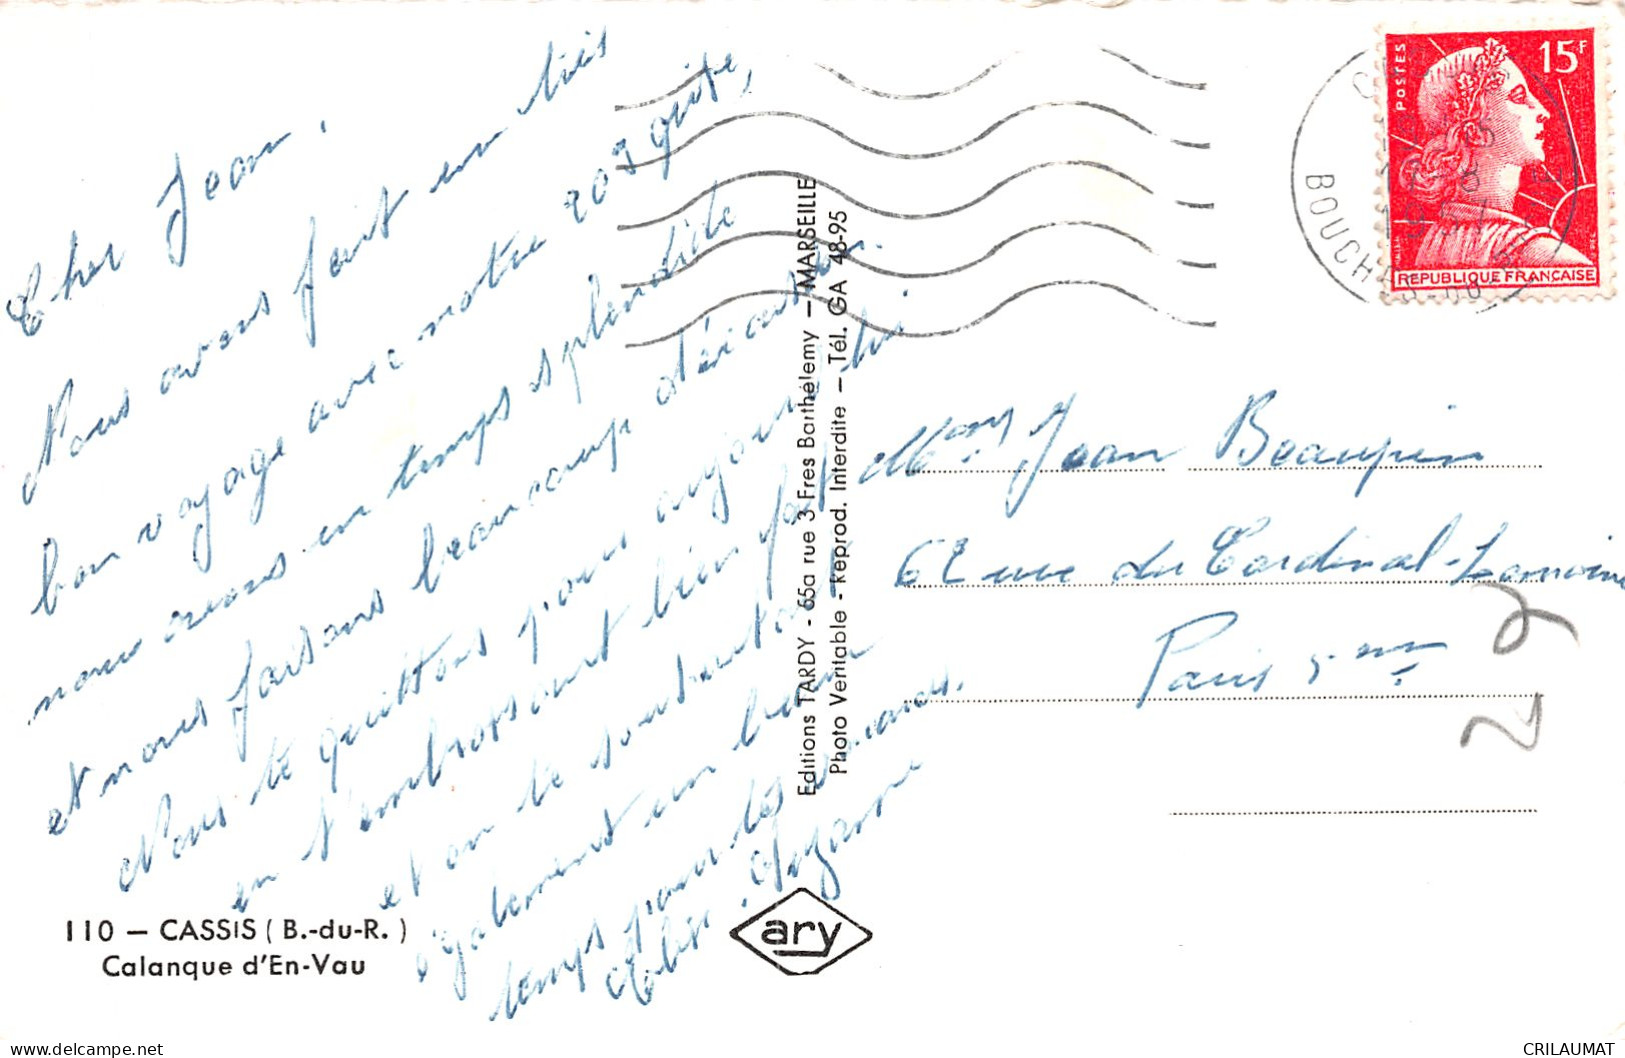 Cher Jean,
Nous avons fait un très
bon voyage avec notre 203 quipe,
nous avons un temps splendide
et nous faisons beaucoup d'excursions.
Nous te quittons pour aujourd'hui
en t'embrassant bien fort
et on te souhaitant
également un beau
temps pour les vacances.
Suzanne
Editions TARDY - 65a rue 3 Fres Barthélemy - MARSEILLE
Photo Véritable - Reprod. Interdite - Tél. GA 48-95
110 - CASSIS ( B.-du-R. )
Calanque d'En-Vau
ary
POSTES
15F
REPUBLIQUE FRANÇAISE
BOUCHES-DU-
Jean Beaupin
62 rue du Cardinal-Lemoine
Paris 5ème
delcampe.net
CRILAUMAT